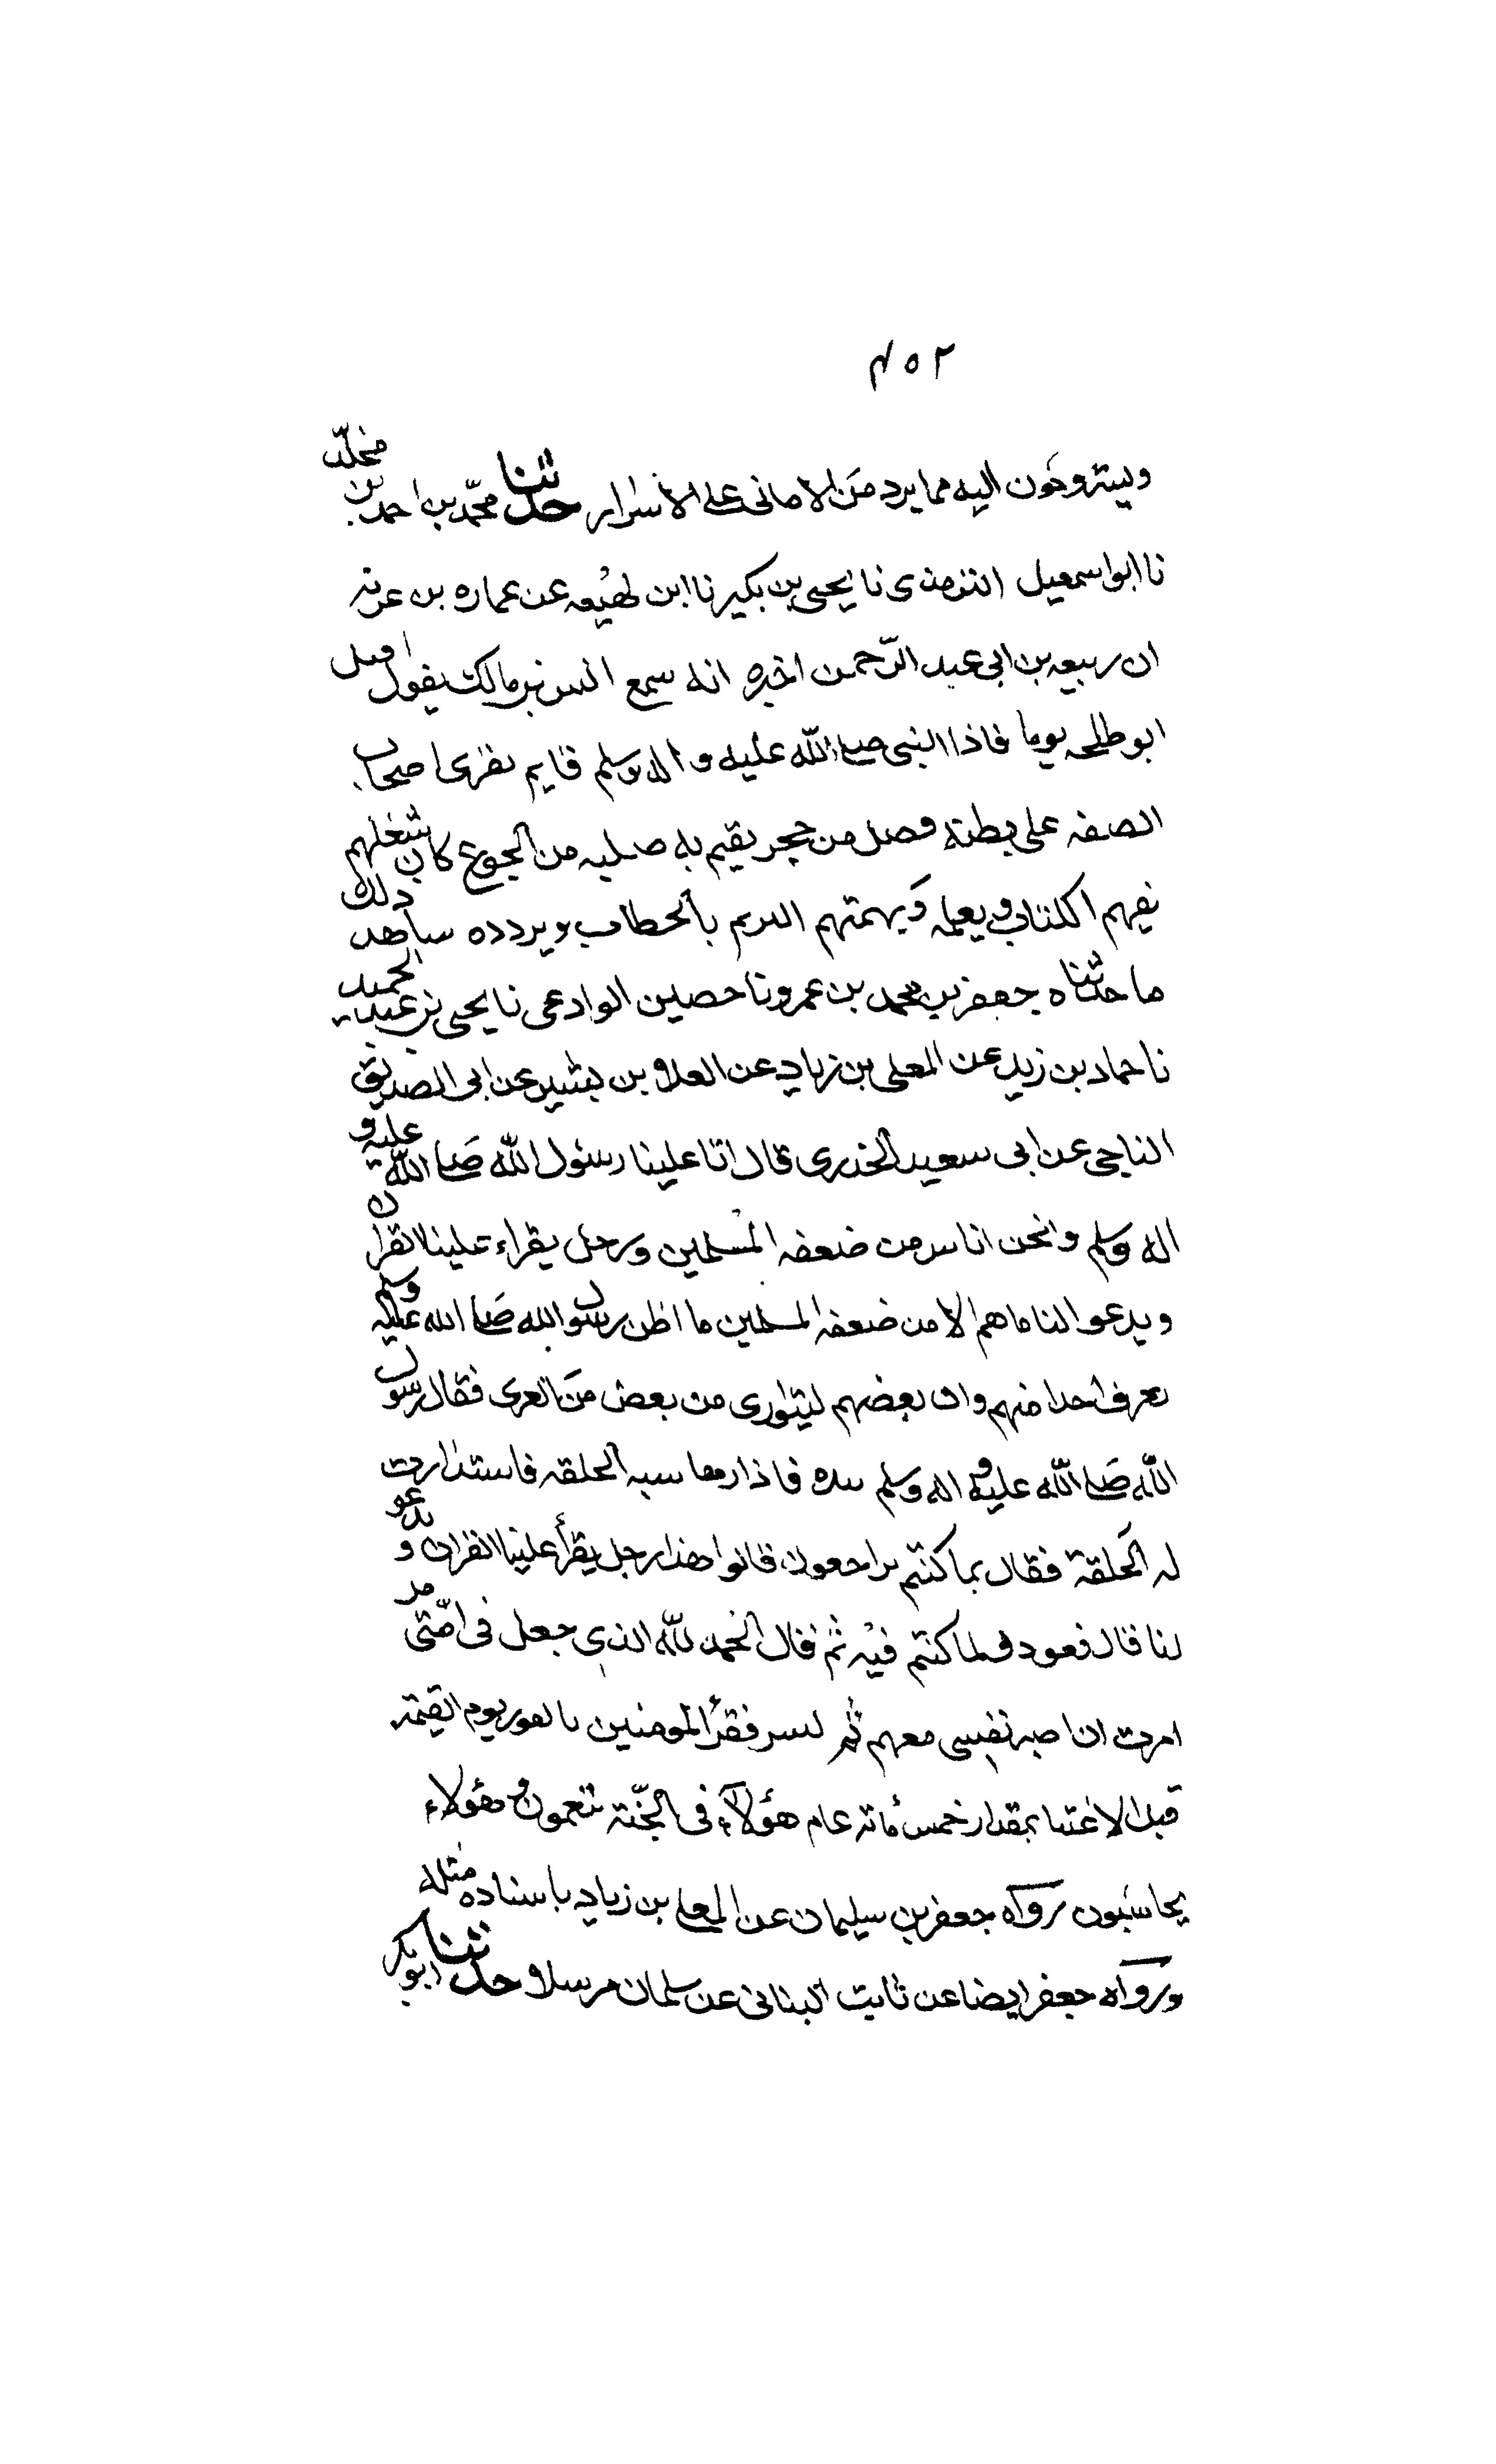 ٤٥٢
ويستروحون اليه مما يرد من الامانى على الاسرار حدثنا محمد بن احمد بن مخلد
نا ابو اسمعيل الترمذى نا يحيى بن بكير نا ابن لهيعه عن عماره بن عزيه
ان ربيعه بن ابى عبد الرّحمن اخبره انه سمع انس بن مالك يقول اقبل
ابو طلحه يوما فاذا النبى صلى اللّه عليه واله وسلم قايم يقرى اصحاب
الصفه على بطنه فصل من حجر يقيم به صلبه من الجوع كان شغلهم
تفهم الكتاب ويعلمه ونهمتهم الترنم بالخطاب ويردده ساهد ذلك
ما حدثناه جعفر بن محمد بن عمرو نا حصين الوادعى نا يحيى بن عبد الحميد
نا حماد بن زيد عن المعلى بن زياد عن العلا بن بشير عن ابى الصديق
الناجى عن ابى سعيد الخدرى قال اتا علينا رسول اللّه صلى اللّه عليه و
اله وسلم ونحن اناس من ضعفه المسلمين ورجل يقراء علينا القران
ويدعو لنا ما هم الا من ضعفه المسلمين ما اظن رسول الله صلى الله عليه وسلم
يعرف احدا منهم وان بعضهم ليتوارى من بعض من العرى فقال رسول
اللّه صلى اللّه عليه و اله وسلم بيده فاذا رمها سبه الحلقه فاستدارت
له الحلقة فقال بما كنتم تراجعون قالوا هذا رجل يقرأ علينا القران و يدعو
لنا قال فعودوا لما كنتم فيه ثم قال الحمد للّه الذى جعل فى امّتى من
امرت ان اصبر نفسى معهم ثم ليسر فقرأ المومنين بالفوز يوم القيمة
قبل الاغنيا بمقدار خمس مائه عام هؤلاء فى الجنّة يتنعمون و هؤلاء
يحاسبون رواه جعفر بن سليمان عن المعلى بن زياد باسناده مثله
ورواه جعفر ايضا عن ثابت البنانى عن سلمان مرسلا حدثنا ابو بكر